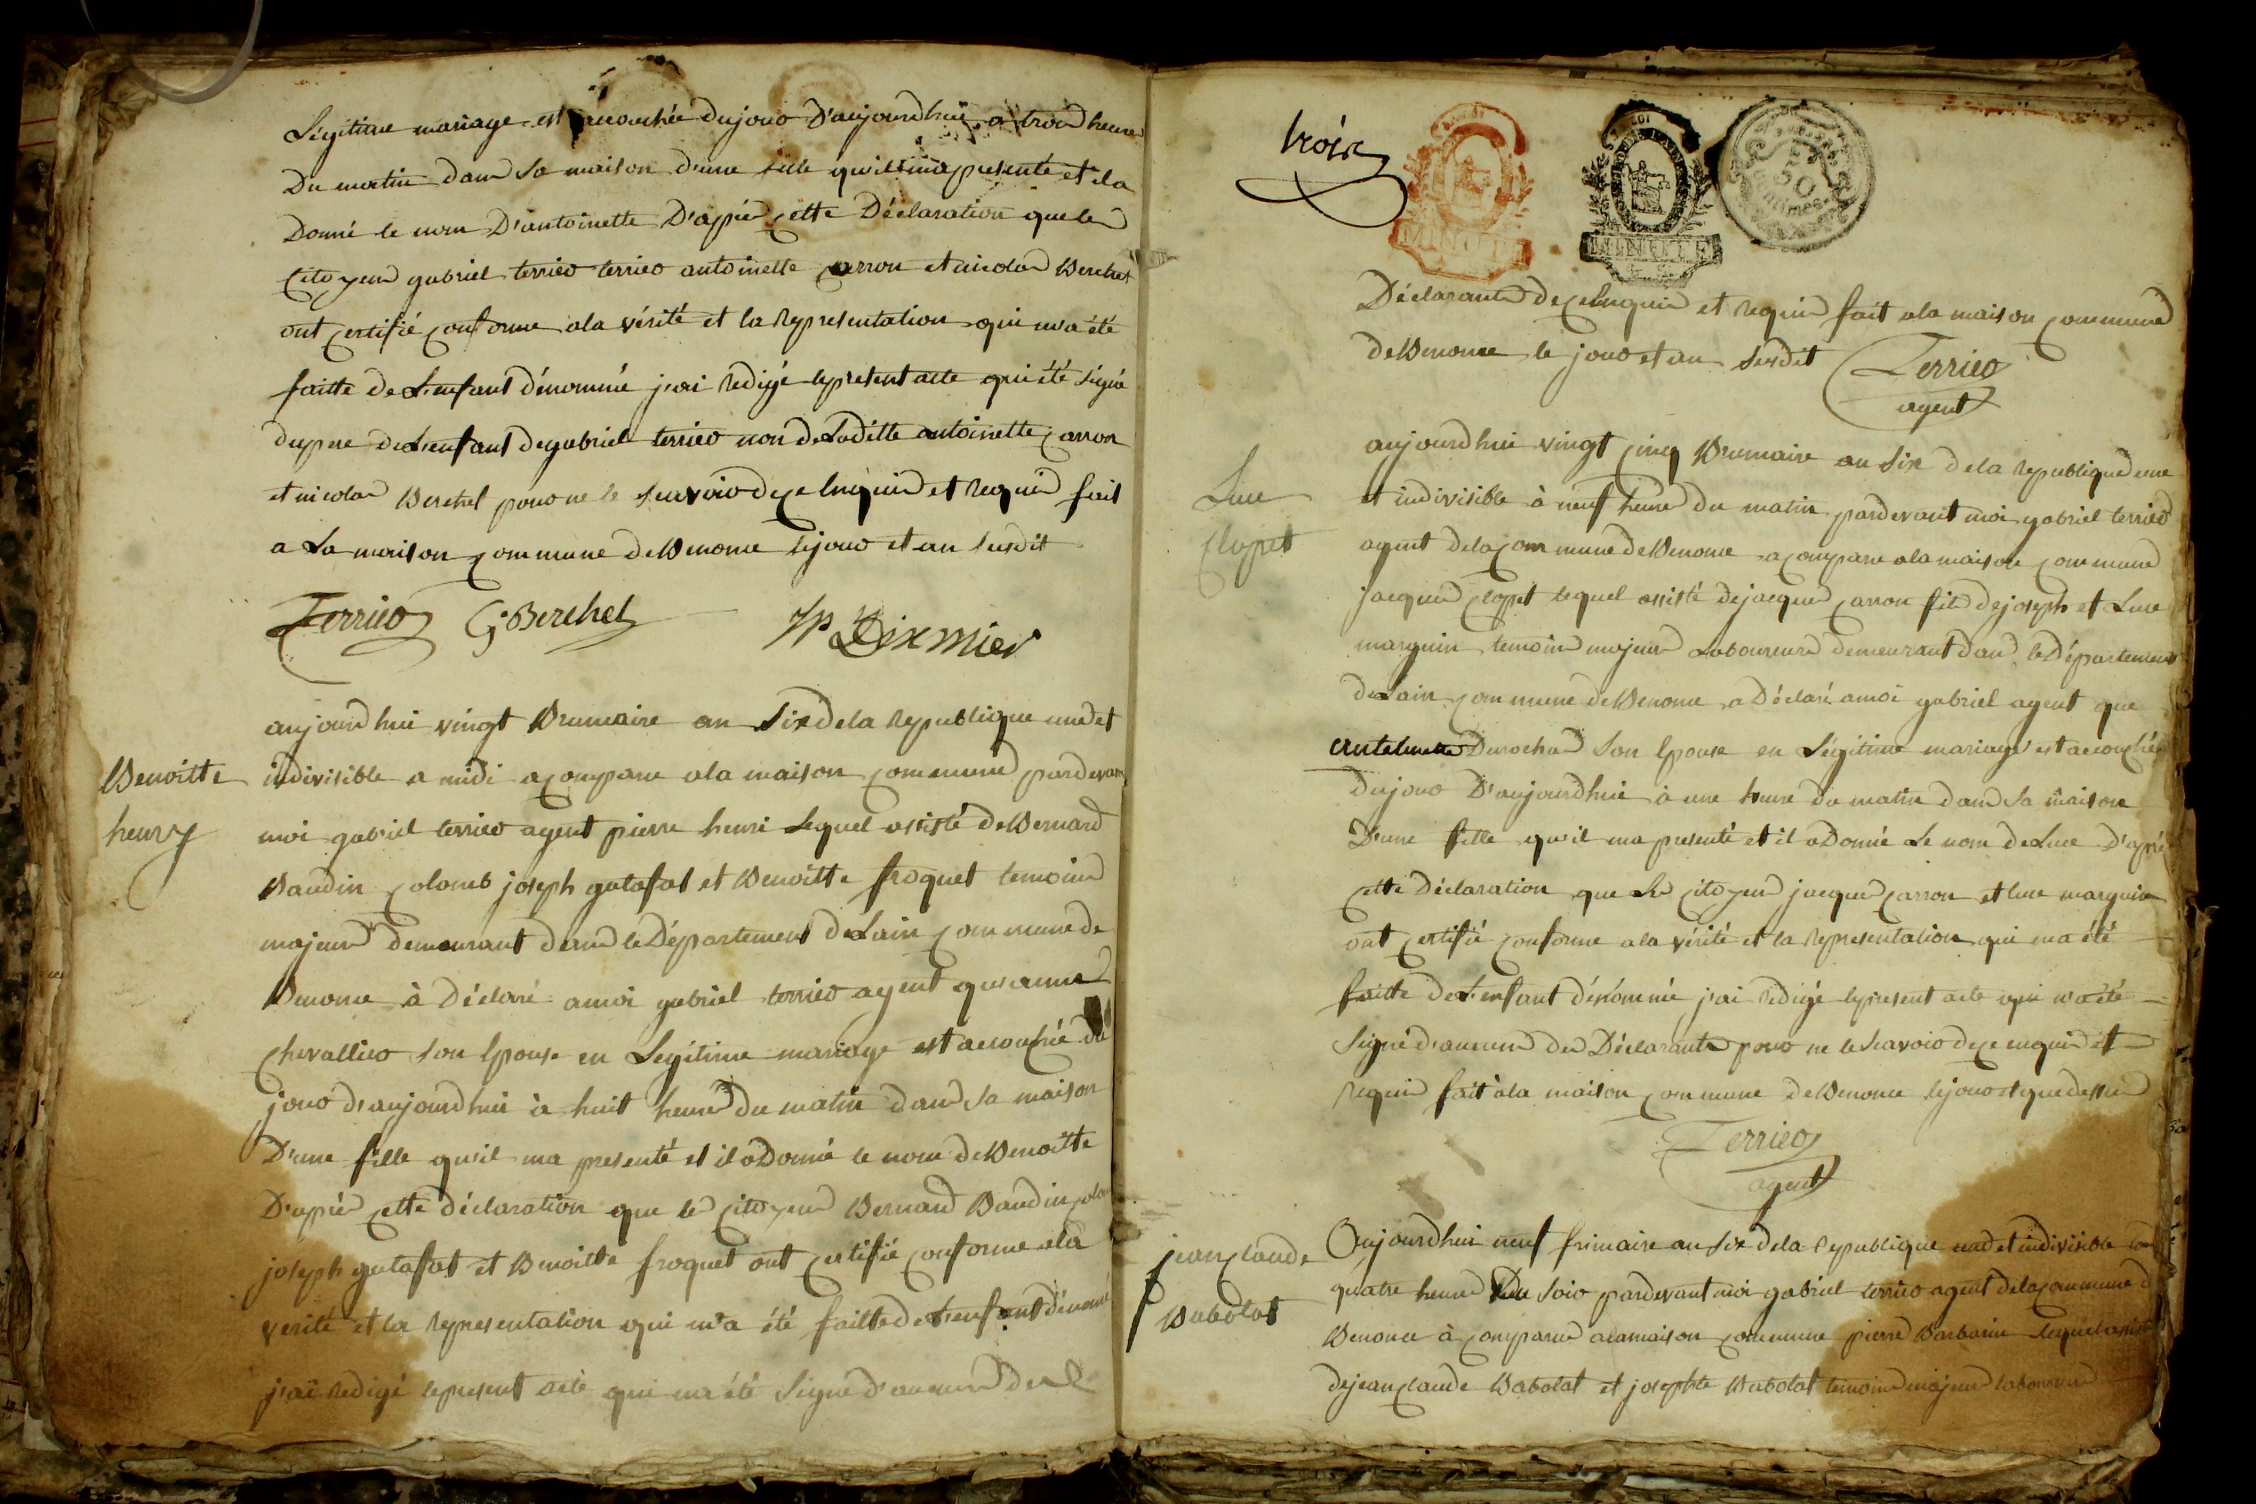 Légitime mariage est accouchée dujour D'aujourdhui a trois heures
Du matin dans sa maison d'une fille qu'il ma presenté et ila
Donné le nom D'antoinette D'après cette Déclaration que les
Citoyens gabriel terrier antoinette carron et nicolas Berchet
ont certifié conforme ala vérité et la representation qui m'a été
faitte de L'enfant dénommé j'ai redigé lepresent acte qui été signé
dupere de L'enfant de gabriel terrier non de Laditte antoinette carron
et nicolas Berchet pour ne le scavoir de ce Enquis et requis fait
a La maison commune de Benonce lejour et an susdit
Terrier G. Berchet JP Dixmier
Benoitte
henry
aujourdhui vingt Brumaire an Six dela republique une et
indivisible a midi a comparu ala maison commune pardevant
moi gabriel terrier agent pierre henri Lequel assisté de Bernard
Baudin colomb joseph gatafat et Benoitte froquet temoins
majeurs demeurant dans le Département de Lain commune de
Benonce à Déclaré amoi gabriel terrier agent qu'anne
chevallier son Epouse en Legitime mariage est accouchée du
jour d'aujourdhui à huit heures du matin dans sa maison
D'une fille qu'il ma presenté et il a Donné le nom de Benoitte
D'après cette déclaration que les citoyens Bernard Baudin
joseph gatafat et Benoitte froquet ont certifié conforme ala
verité et la representation qui m'a été faitte de L'enfant dénommé
j'ai redigé lepresent acte qui n'a été Signé d'aucuns des
trois
MINUTE
MINUTE
50
centimes
Déclarants de ce Enquis et requis fait ala maison commune
de Benonce le jour et an susdit Terrier
agent
Luce
Clopet
aujourdhui vingt cinq Brumaire an six dela republique une
et indivisible à neuf heures du matin pardevant moi gabriel terrier
agent dela commune de Benonce a comparu ala maison commune
jacques clopet lequel assisté de jacques carron fils de joseph et Luce
marguin temoins majeurs Laboureurs demeurant dans le Département
de Lain commune de Benonce a Déclaré amoi gabriel agent que
Durochas son Epouse en Légitime mariage est accouchée
dujour D'aujourdhui à une heure du matin dans sa maison
D'une fille qu'il ma presenté et il a Donné Le nom de Luce D'après
cette Déclaration que Les citoyens jacques carron et luce marguin
ont certifié conforme ala vérité et la representation qui ma été
faitte de L'enfant dénommé j'ai redigé lepresent acte qui n'a été
Signé d'aucuns des Déclarants pour ne le Scavoir de ce enquis et
requis fait à la maison commune de Benonce lejour et que dessus
Terrier
agent
jean claude
Babolat
Aujourdhui neuf frimaire an six dela republique une et indivisible
quatre heures Du soir pardevant moi gabriel terrier agent dela commune de
Benonce à comparu ala maison commune pierre Barbarin Lequel assisté
de jean claude Babolat et josephte Babolat temoins majeurs laboureurs